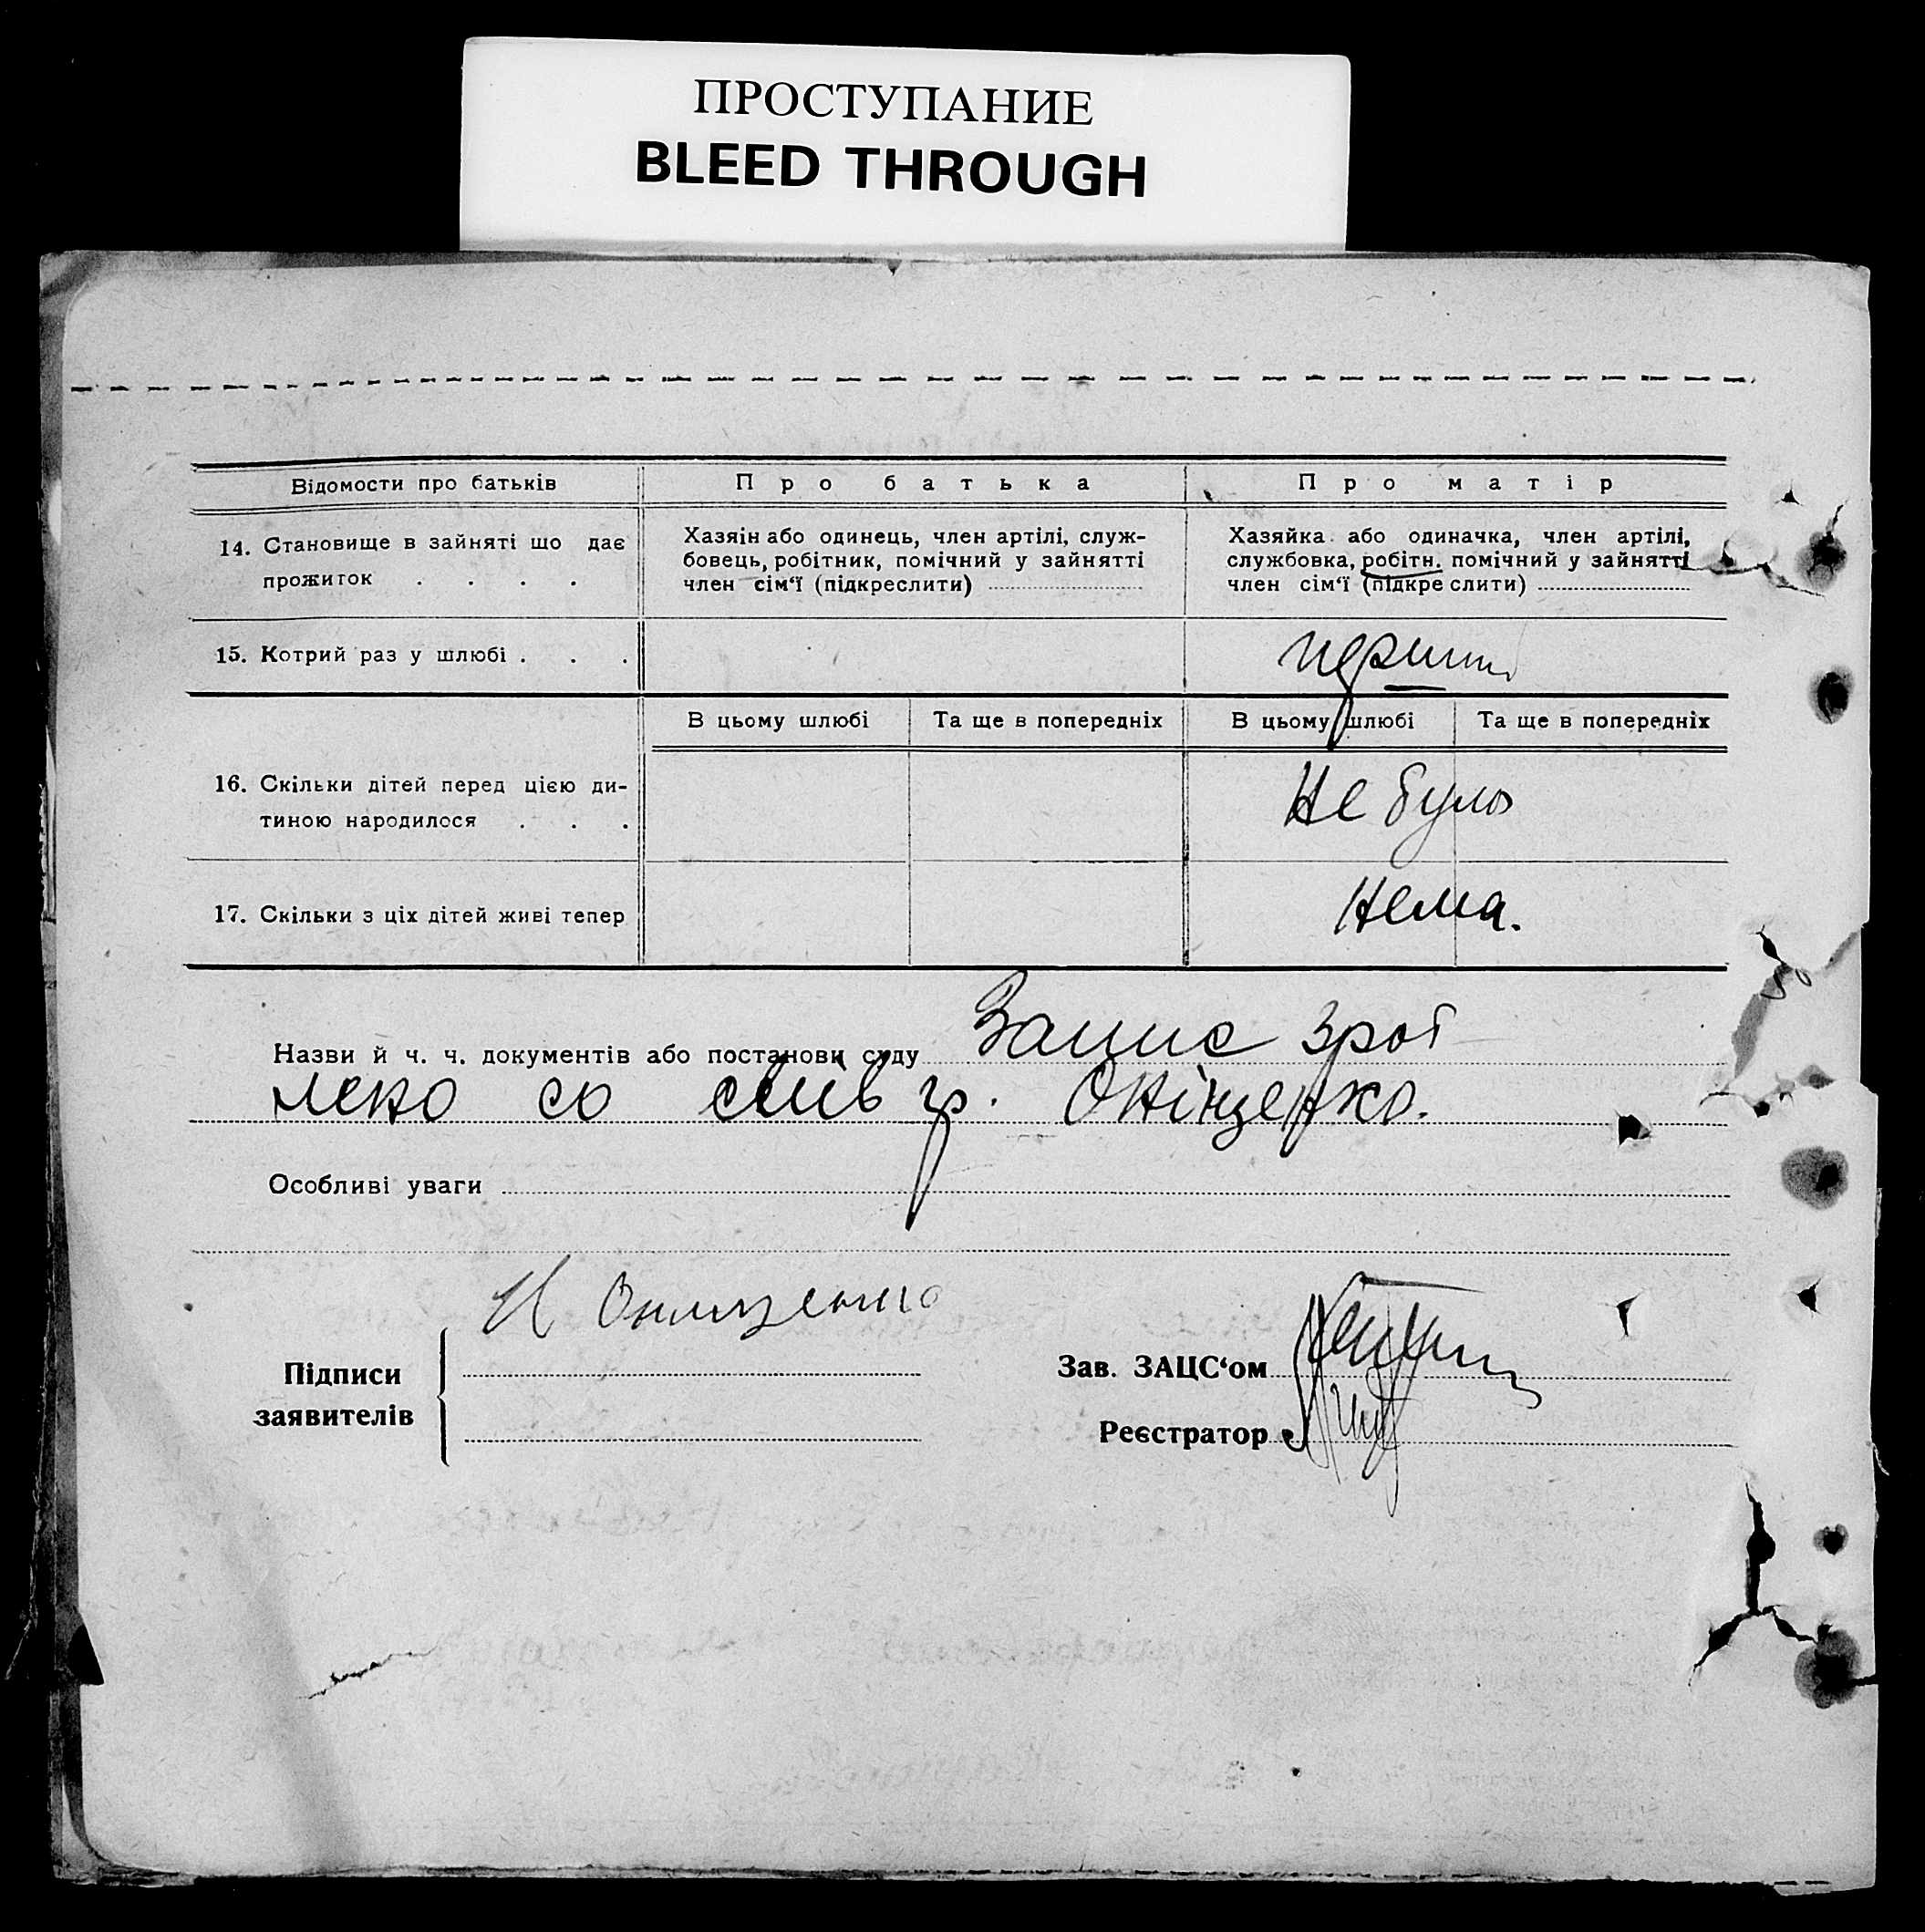 ПРОСТУПАНИЕ
BLEED THROUGH
Відомости про батьків Про батька Про матір
14. Становище в зайняті що дає прожиток . . . .
Хазяін або одинець, член артілі, служ-
бовець, робітник, помічний у зайнятті
член сім‘ї (підкреслити)
Хазяйка або одиначка, член артілі,
службовка, робітн. помічний у зайнятті
член сім‘ї (підкреслити)
15. Котрий раз у шлюбі . . .
В цьому шлюбі Та ще в попередніх В цьому шлюбі Та ще в попередніх
16. Скільки дітей перед цією ди-
тиною народилося . . .
Не було
17. Скільки з ціх дітей живі тепер Нема.
Назви й ч. ч. документів або постанови суду Запис зроб
лено со слів гр. Оніщенко.
Особливі уваги
Н Онищенко
Підписи
заявителів
Зав. ЗАЦС‘ом
Реєстратор